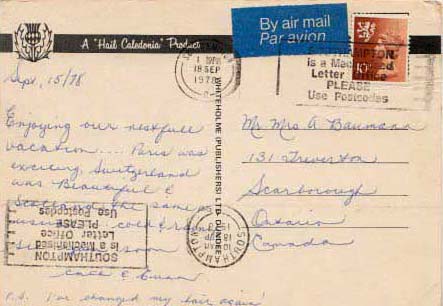 A "Hail Caledonia" Product
By air mail
Par avion
Sept, 15/78
SOUTHAMPTON
18 SEP
1978
SOUTHAMPTON
is a Mechanised
Letter Office
PLEASE
Use Postcodes
WHITEHOLME (PUBLISHERS) LTD. DUNDEE
Enjoying our restfull
vacation.... Paris was
exciting, Switzerland
was Beautiful &
Scotland the same as
cold &
soon
&
P.S. I've changed my hair again!
Mr Mrs A Baumann
131 Treverton
Scarborough
Ontario
Canada
SOUTHAMPTON
is a Mechanised
Letter Office
PLEASE
Use Postcodes
SOUTHAMPTON
18